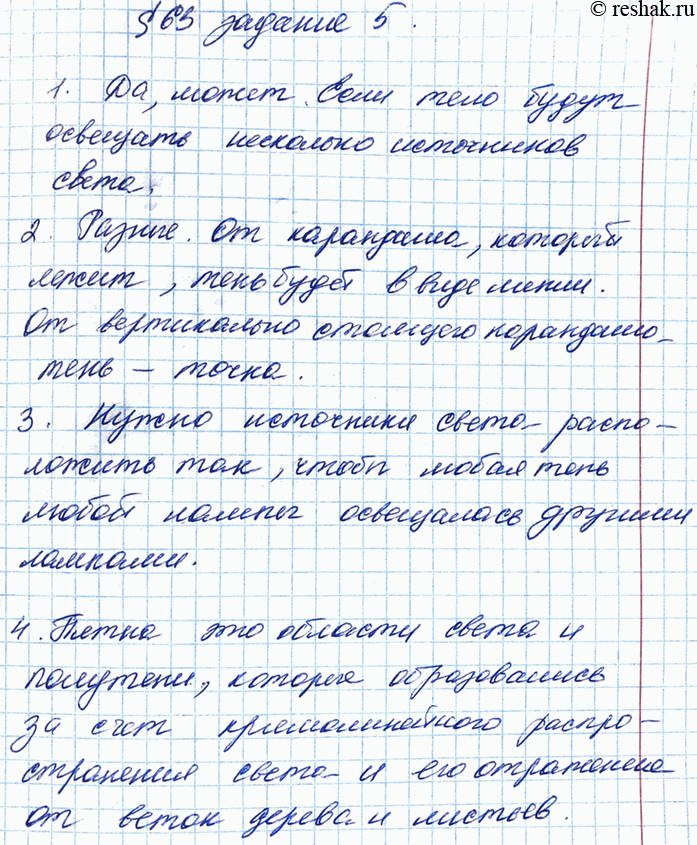 © reshak.ru
§63 задание 5.
1. Да, может. Если тело будут
освещать несколько источников
света.
2. Разные. От карандаша, который
лежит, тень будет в виде линии.
От вертикально стоящего карандаша
тень – точка.
3. Нужно источники света распо-
ложить так, чтобы любая тень
любой лампы освещалась другими
лампами.
4. Пятна это области света и
полутени, которые образовались
за счет прямолинейного распро-
странения света и его отражение
от веток дерева и листьев.